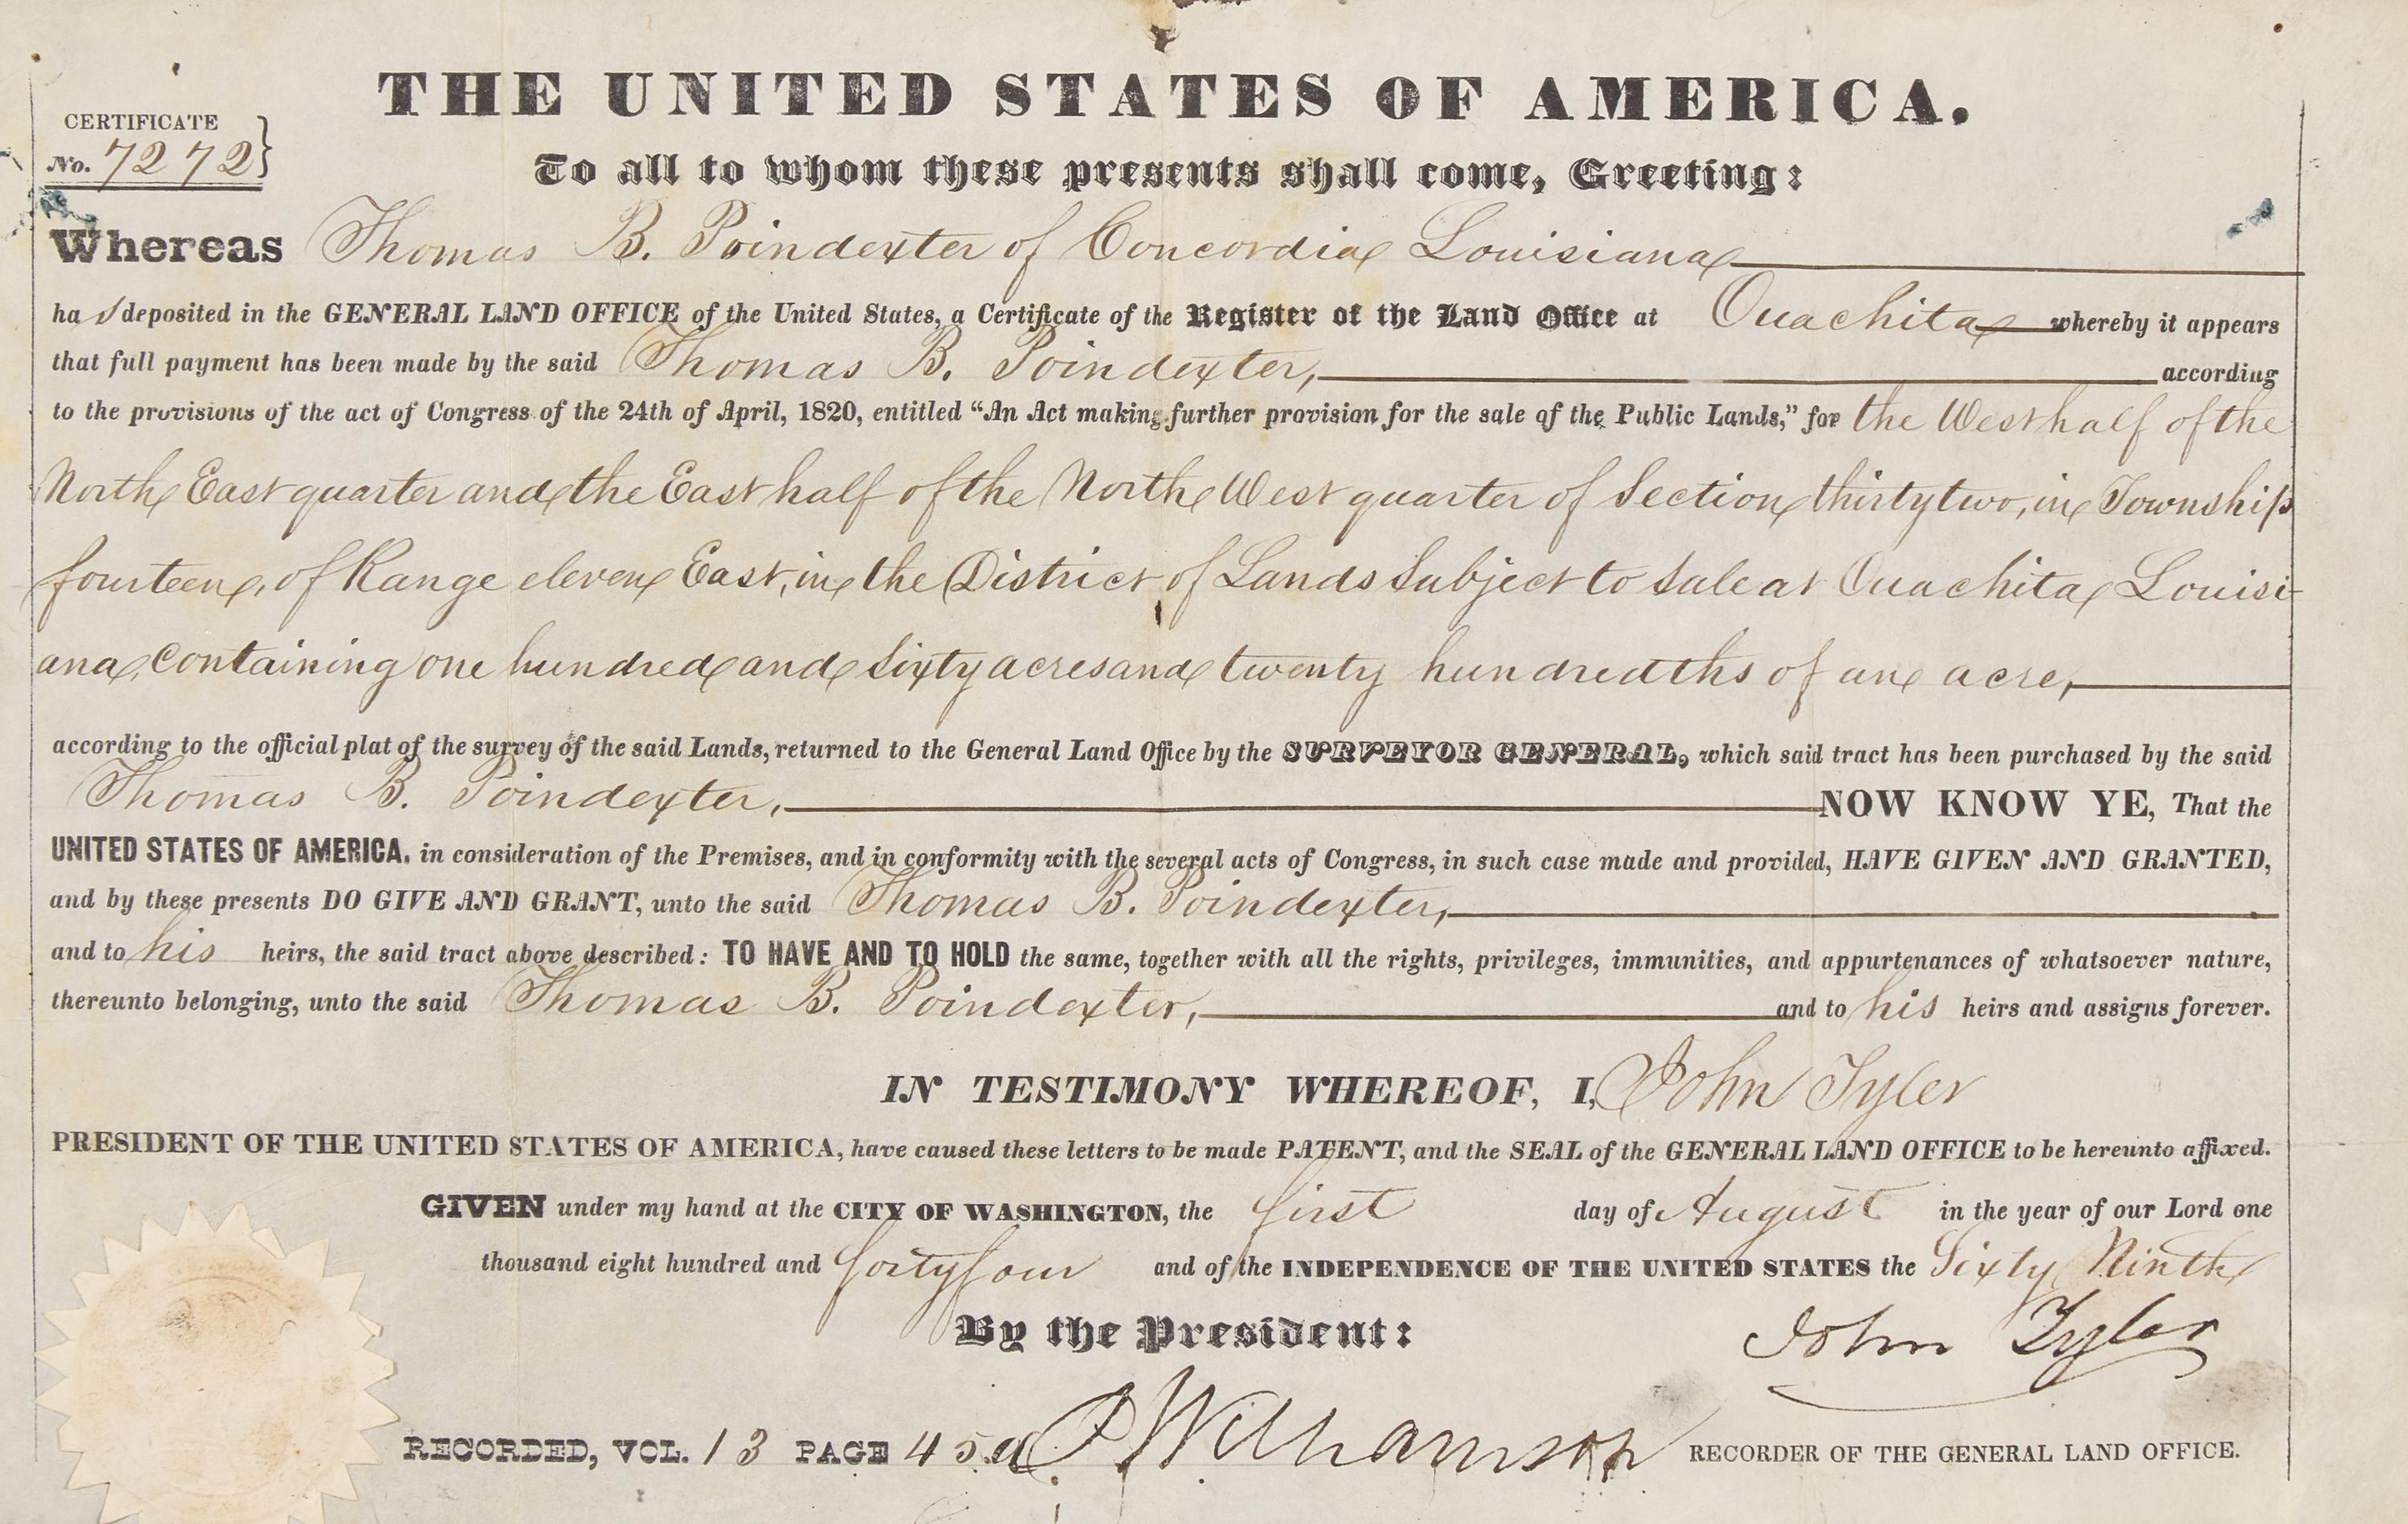 THE UNITED STATES OF AMERICA.
CERTIFICATE
No. 7272
To all to whom these presents shall come, Greeting:
Whereas Thomas B. Poindexter of Concordia Louisiana
has deposited in the GENERAL LAND OFFICE of the United States, a Certificate of the Register of the Land Office at Ouachita whereby it appears
that full payment has been made by the said Thomas B. Poindexter, according
to the provisions of the act of Congress of the 24th of April, 1820, entitled "An Act making further provision for the sale of the Public Lands," for the West half of the
North East quarter and the East half of the North West quarter of Section thirty two, in Township
fourteen, of Range eleven East, in the District of Lands Subject to Sale at Ouachita Louisi-
ana, containing one hundred and sixty acres and twenty hundredths of an acre,
according to the official plat of the survey of the said Lands, returned to the General Land Office by the SURVEYOR GENERAL, which said tract has been purchased by the said
Thomas B. Poindexter, NOW KNOW YE, That the
UNITED STATES OF AMERICA, in consideration of the Premises, and in conformity with the several acts of Congress, in such case made and provided, HAVE GIVEN AND GRANTED,
and by these presents DO GIVE AND GRANT, unto the said Thomas B. Poindexter,
and to his heirs, the said tract above described: TO HAVE AND TO HOLD the same, together with all the rights, privileges, immunities, and appurtenances of whatsoever nature,
thereunto belonging, unto the said Thomas B. Poindexter, and to his heirs and assigns forever.
IN TESTIMONY WHEREOF, I, John Tyler
PRESIDENT OF THE UNITED STATES OF AMERICA, have caused these letters to be made PATENT, and the SEAL of the GENERAL LAND OFFICE to be hereunto affixed.
GIVEN under my hand at the CITY OF WASHINGTON, the first day of August in the year of our Lord one
thousand eight hundred and forty four and of the INDEPENDENCE OF THE UNITED STATES the Sixty Ninth
By the President: John Tyler
RECORDED, VOL. 13 PAGE Williamson RECORDER OF THE GENERAL LAND OFFICE.